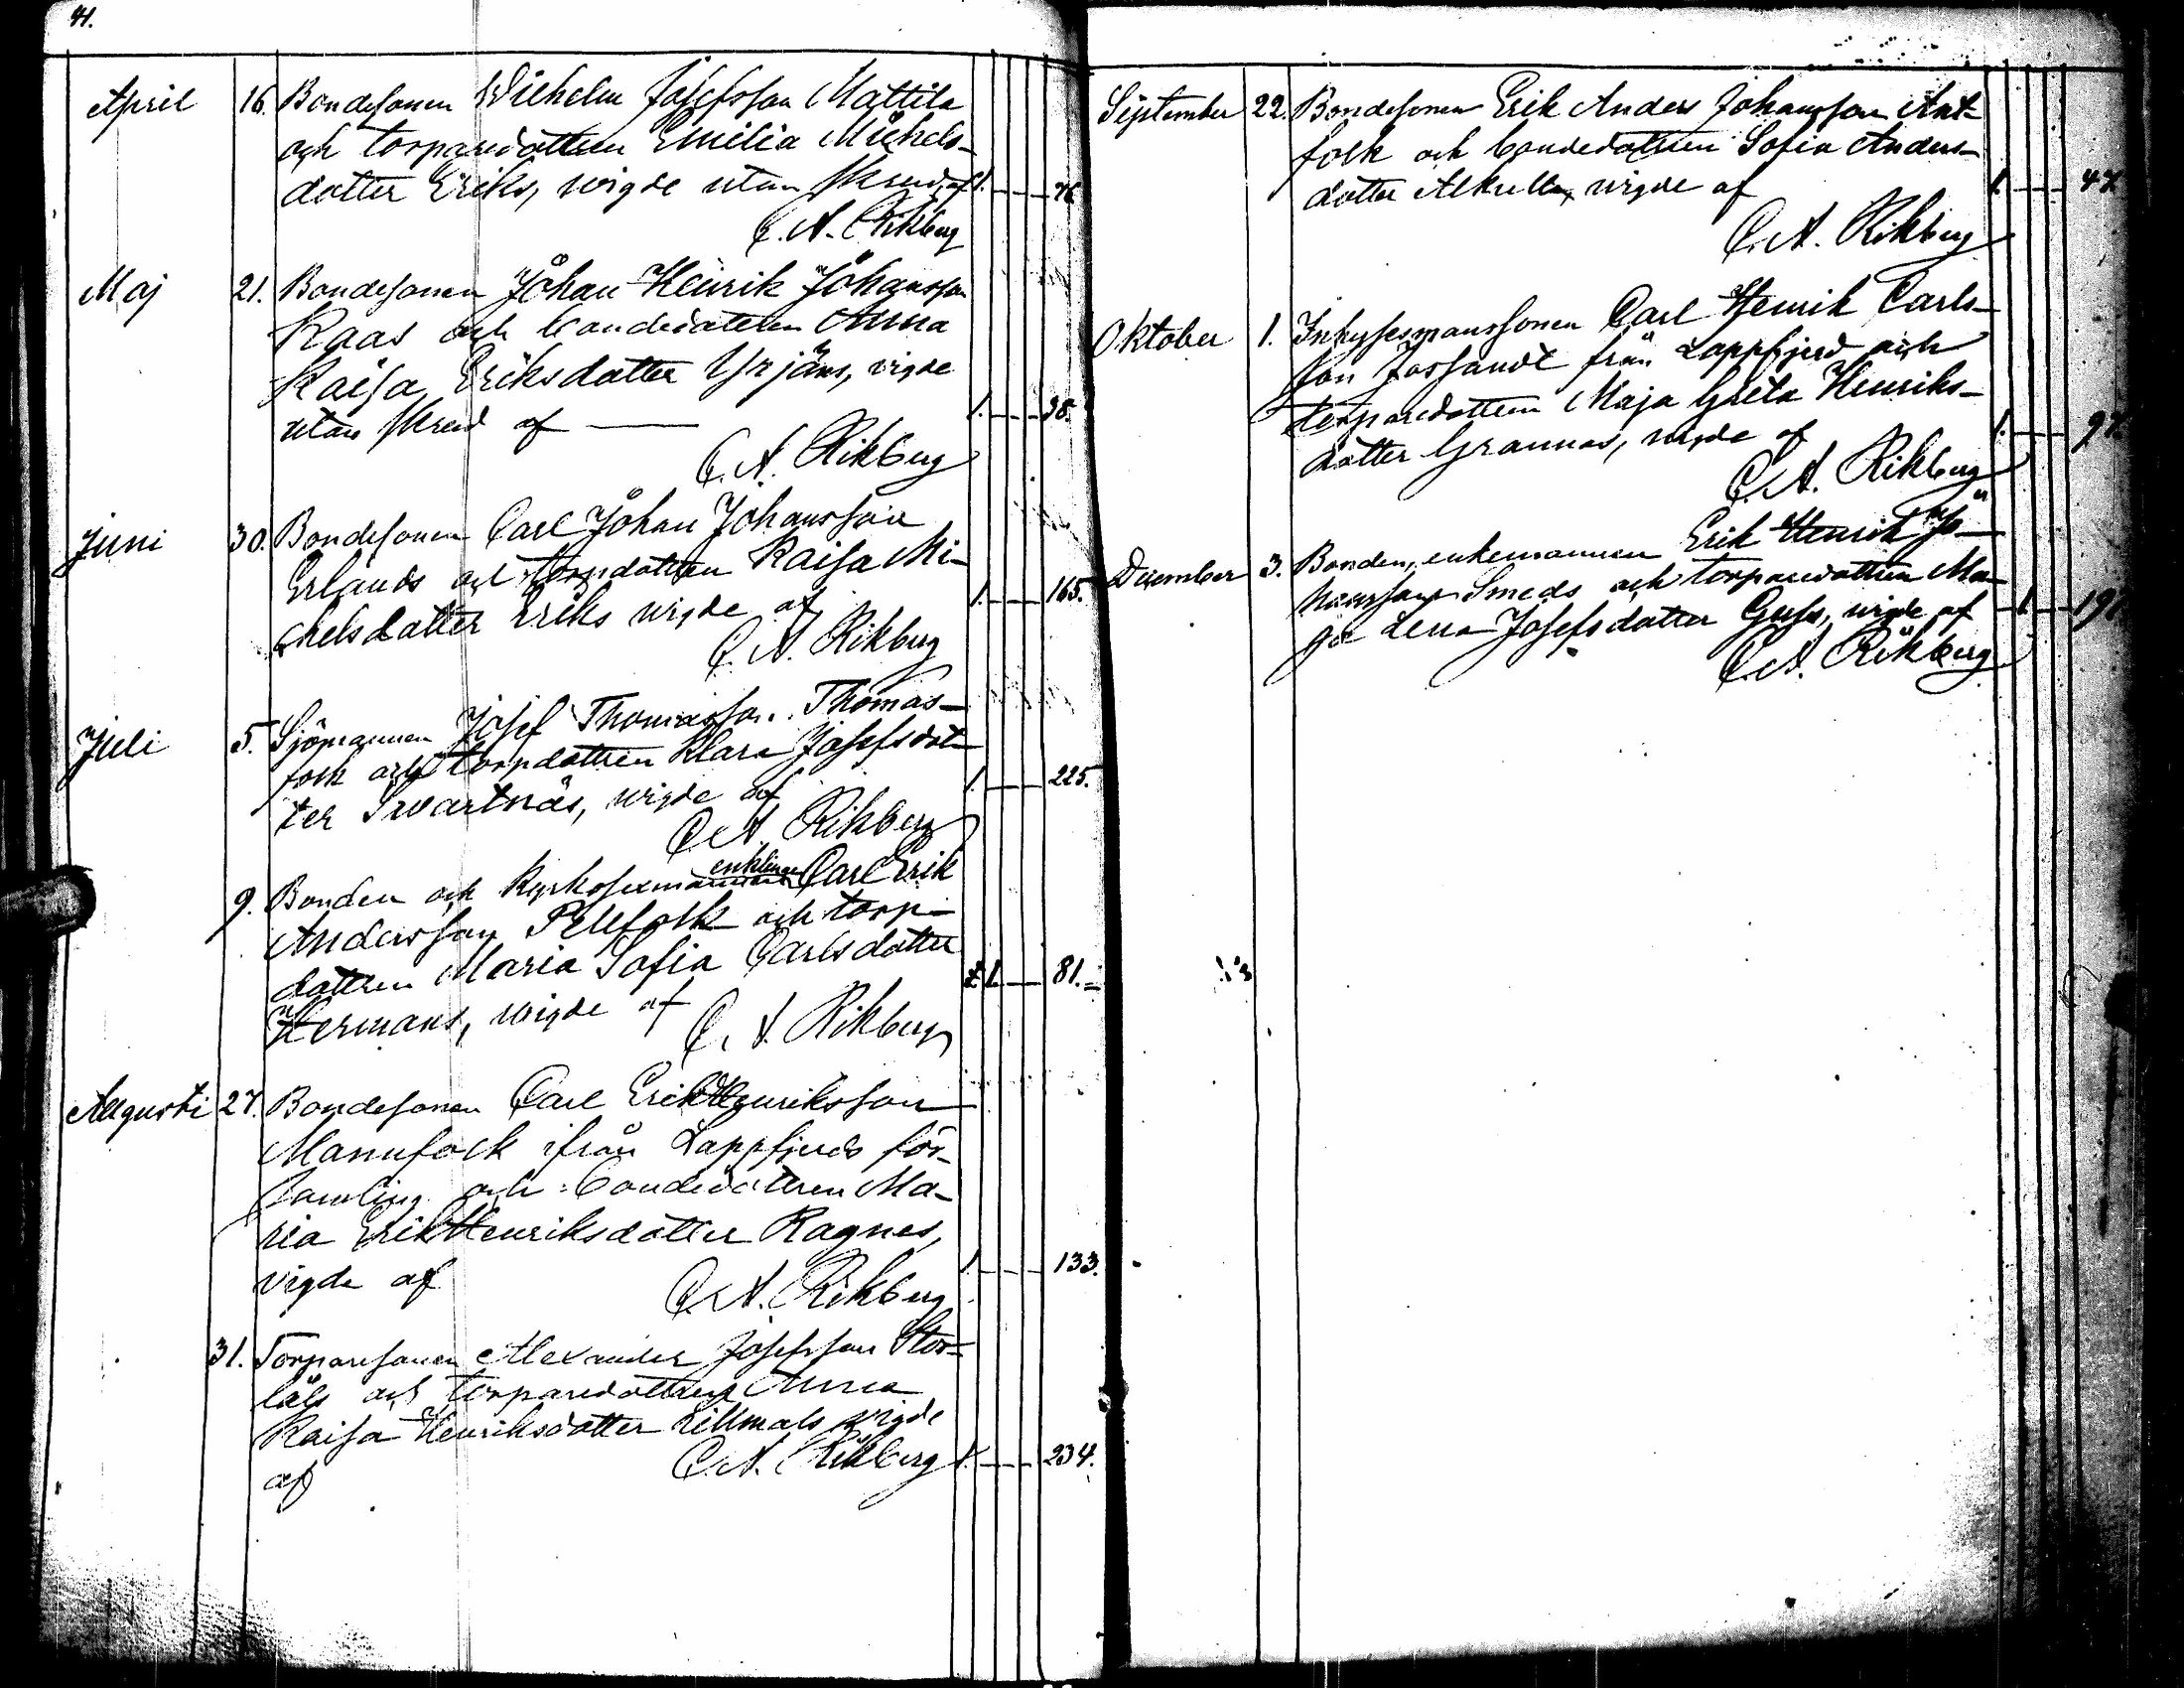 41.
April 16. Bondesonen Wilhelm Josefsson Mattila
och torparedottren Emilia Michels-
dotter Eriks, wigde utan skrud, af 1. 76
C. A. Rikberg
Maj 21. Bondesonen Johan Henrik Johansson
Kaas och bondedottren Anna
Kaisa Eriksdotter Yrjäns, vigde
utan skrud af 1. 38.
C. A. Rikberg
Juni 30. Bondesonen Carl Johan Johansson
Erlands och torpdottren Kaisa Mi-
chelsdotter Eriks wigde af 1. 165.
C. A. Rikberg
Juli 5. Sjömannen Josef Thomasson Thomas-
folk och torpdottren Klara Josefsdot-
ter Swartnäs, wigde af 1. 225.
C. A. Rikberg
enklingen
9. Bonden och kyrkosexmannen Carl Erik
Andersson Pellfolk och torp-
dottren Maria Sofia Carlsdotter
Hermans, wigde af 1. 81.
C. A. Rikberg
Augusti 27. Bondesonen Carl Erik Henriksson
Mannfolk ifrån Lappfjerds för-
samling och bondedottren Ma-
ria Erik Henriksdotter Ragnes,
vigde af 1. 133.
C. A. Rikberg
31. Torparesonen Alexander Josefsson Stor-
låls och torparedottren Anna
Kaisa Henriksdotter Lillmåls wigde
af C. A. Rikberg 1. 234.
September 22. Bondesonen Erik Anders Johansson Ant-
folk och bondedottren Sofia Anders-
dotter Alkulla, wigde af 1. 47.
C. A. Rikberg
Oktober 1. Inhysesmanssonen Carl Henrik Carls-
son Forssandt från Lappfjerd och
torparedottren Maja Greta Henriks-
dotter Grannas, wigde af 1. 97.
C. A. Rikberg
December 3. Bonden, enkemannen Erik Henrik Jo-
hansson Smeds och torparedottren Ma-
ja Lena Josefsdotter Guss, wigde af 1. 191
C. A. Rikberg